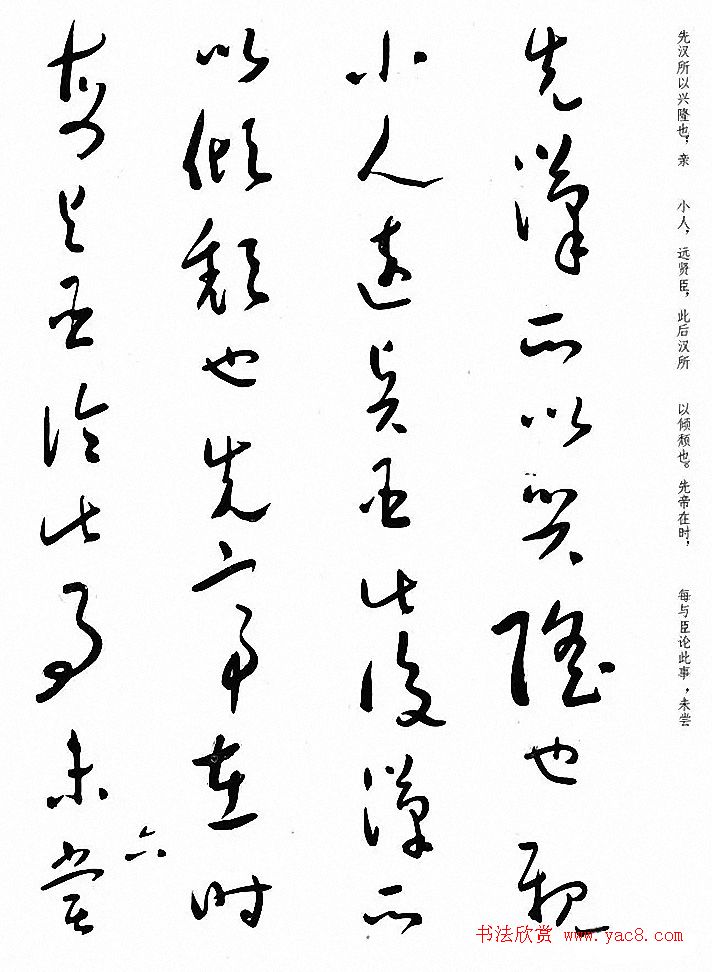 先汉所以兴隆也，亲　小人，远贤臣，此后汉所　以倾颓也。先帝在时，　每与臣论此事，未尝
先漢所以興隆也親
小人遠賢臣此後漢所
以傾頽也先帝在時
每與臣論此事未嘗
六
书法欣赏 www.yac8.com